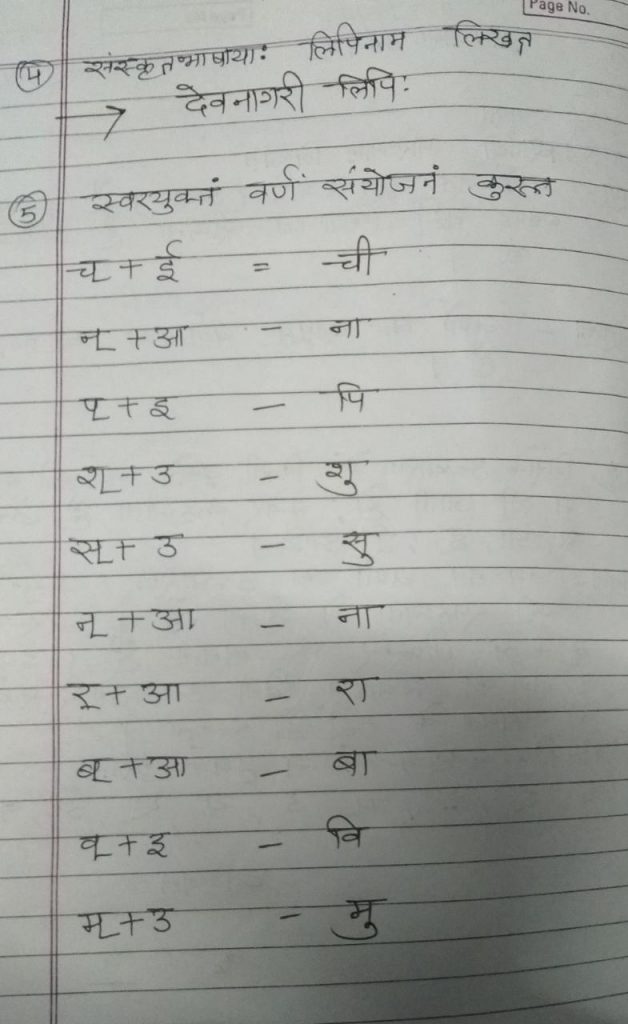 Page No.
④ संस्कृतभाषायाः लिपिनाम लिखत
→ देवनागरी लिपिः
⑤ स्वरयुक्तं वर्ण संयोजनं कुरुत
च् + ई = ची
न् + आ - ना
प् + इ - पि
श् + उ - शु
स् + उ - सु
न् + आ - ना
र् + आ - रा
ब् + आ - बा
व् + इ - वि
म् + उ - मु